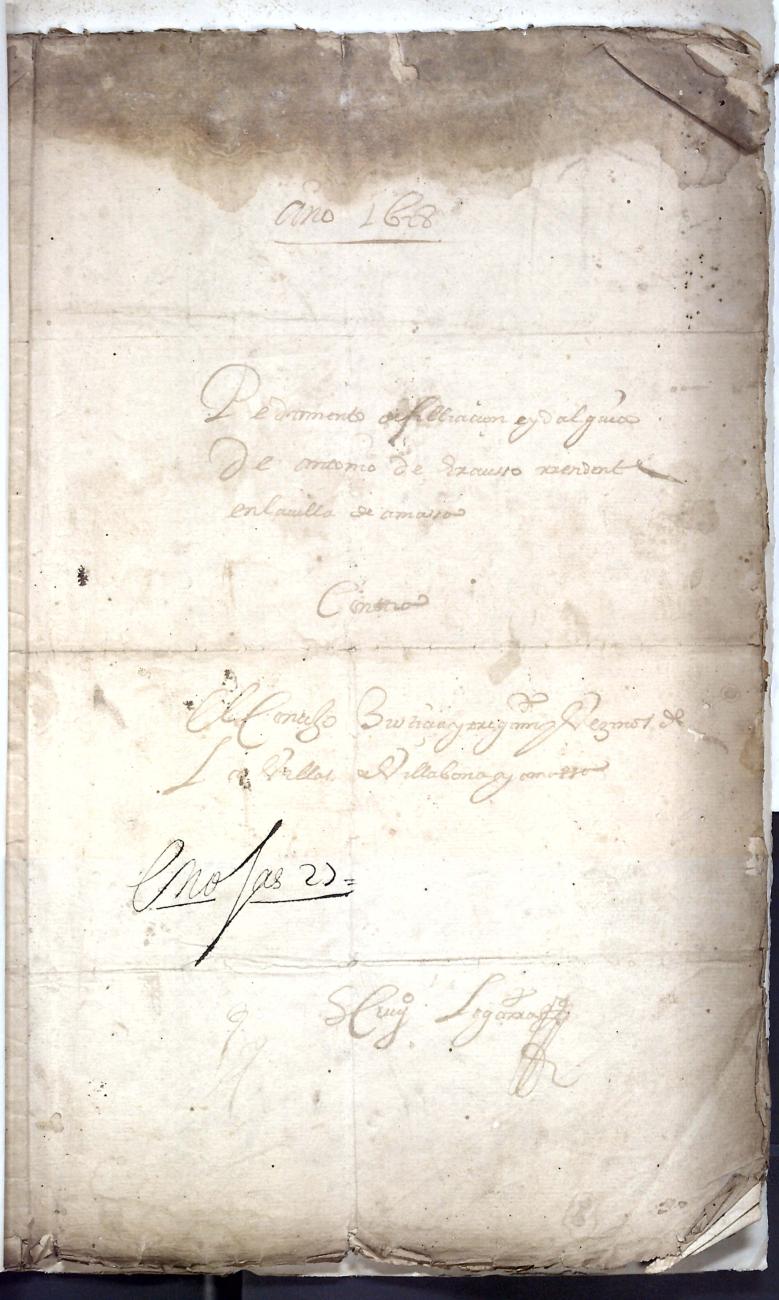 Año 1628
Pedimento de filiacion e ydalguia
De antonio de Erausso rresidente
en la villa de amasa
Contra
El Concejo Justicia y Vezinos de
Las Villas de Villabona y amassa
En ojas 27=